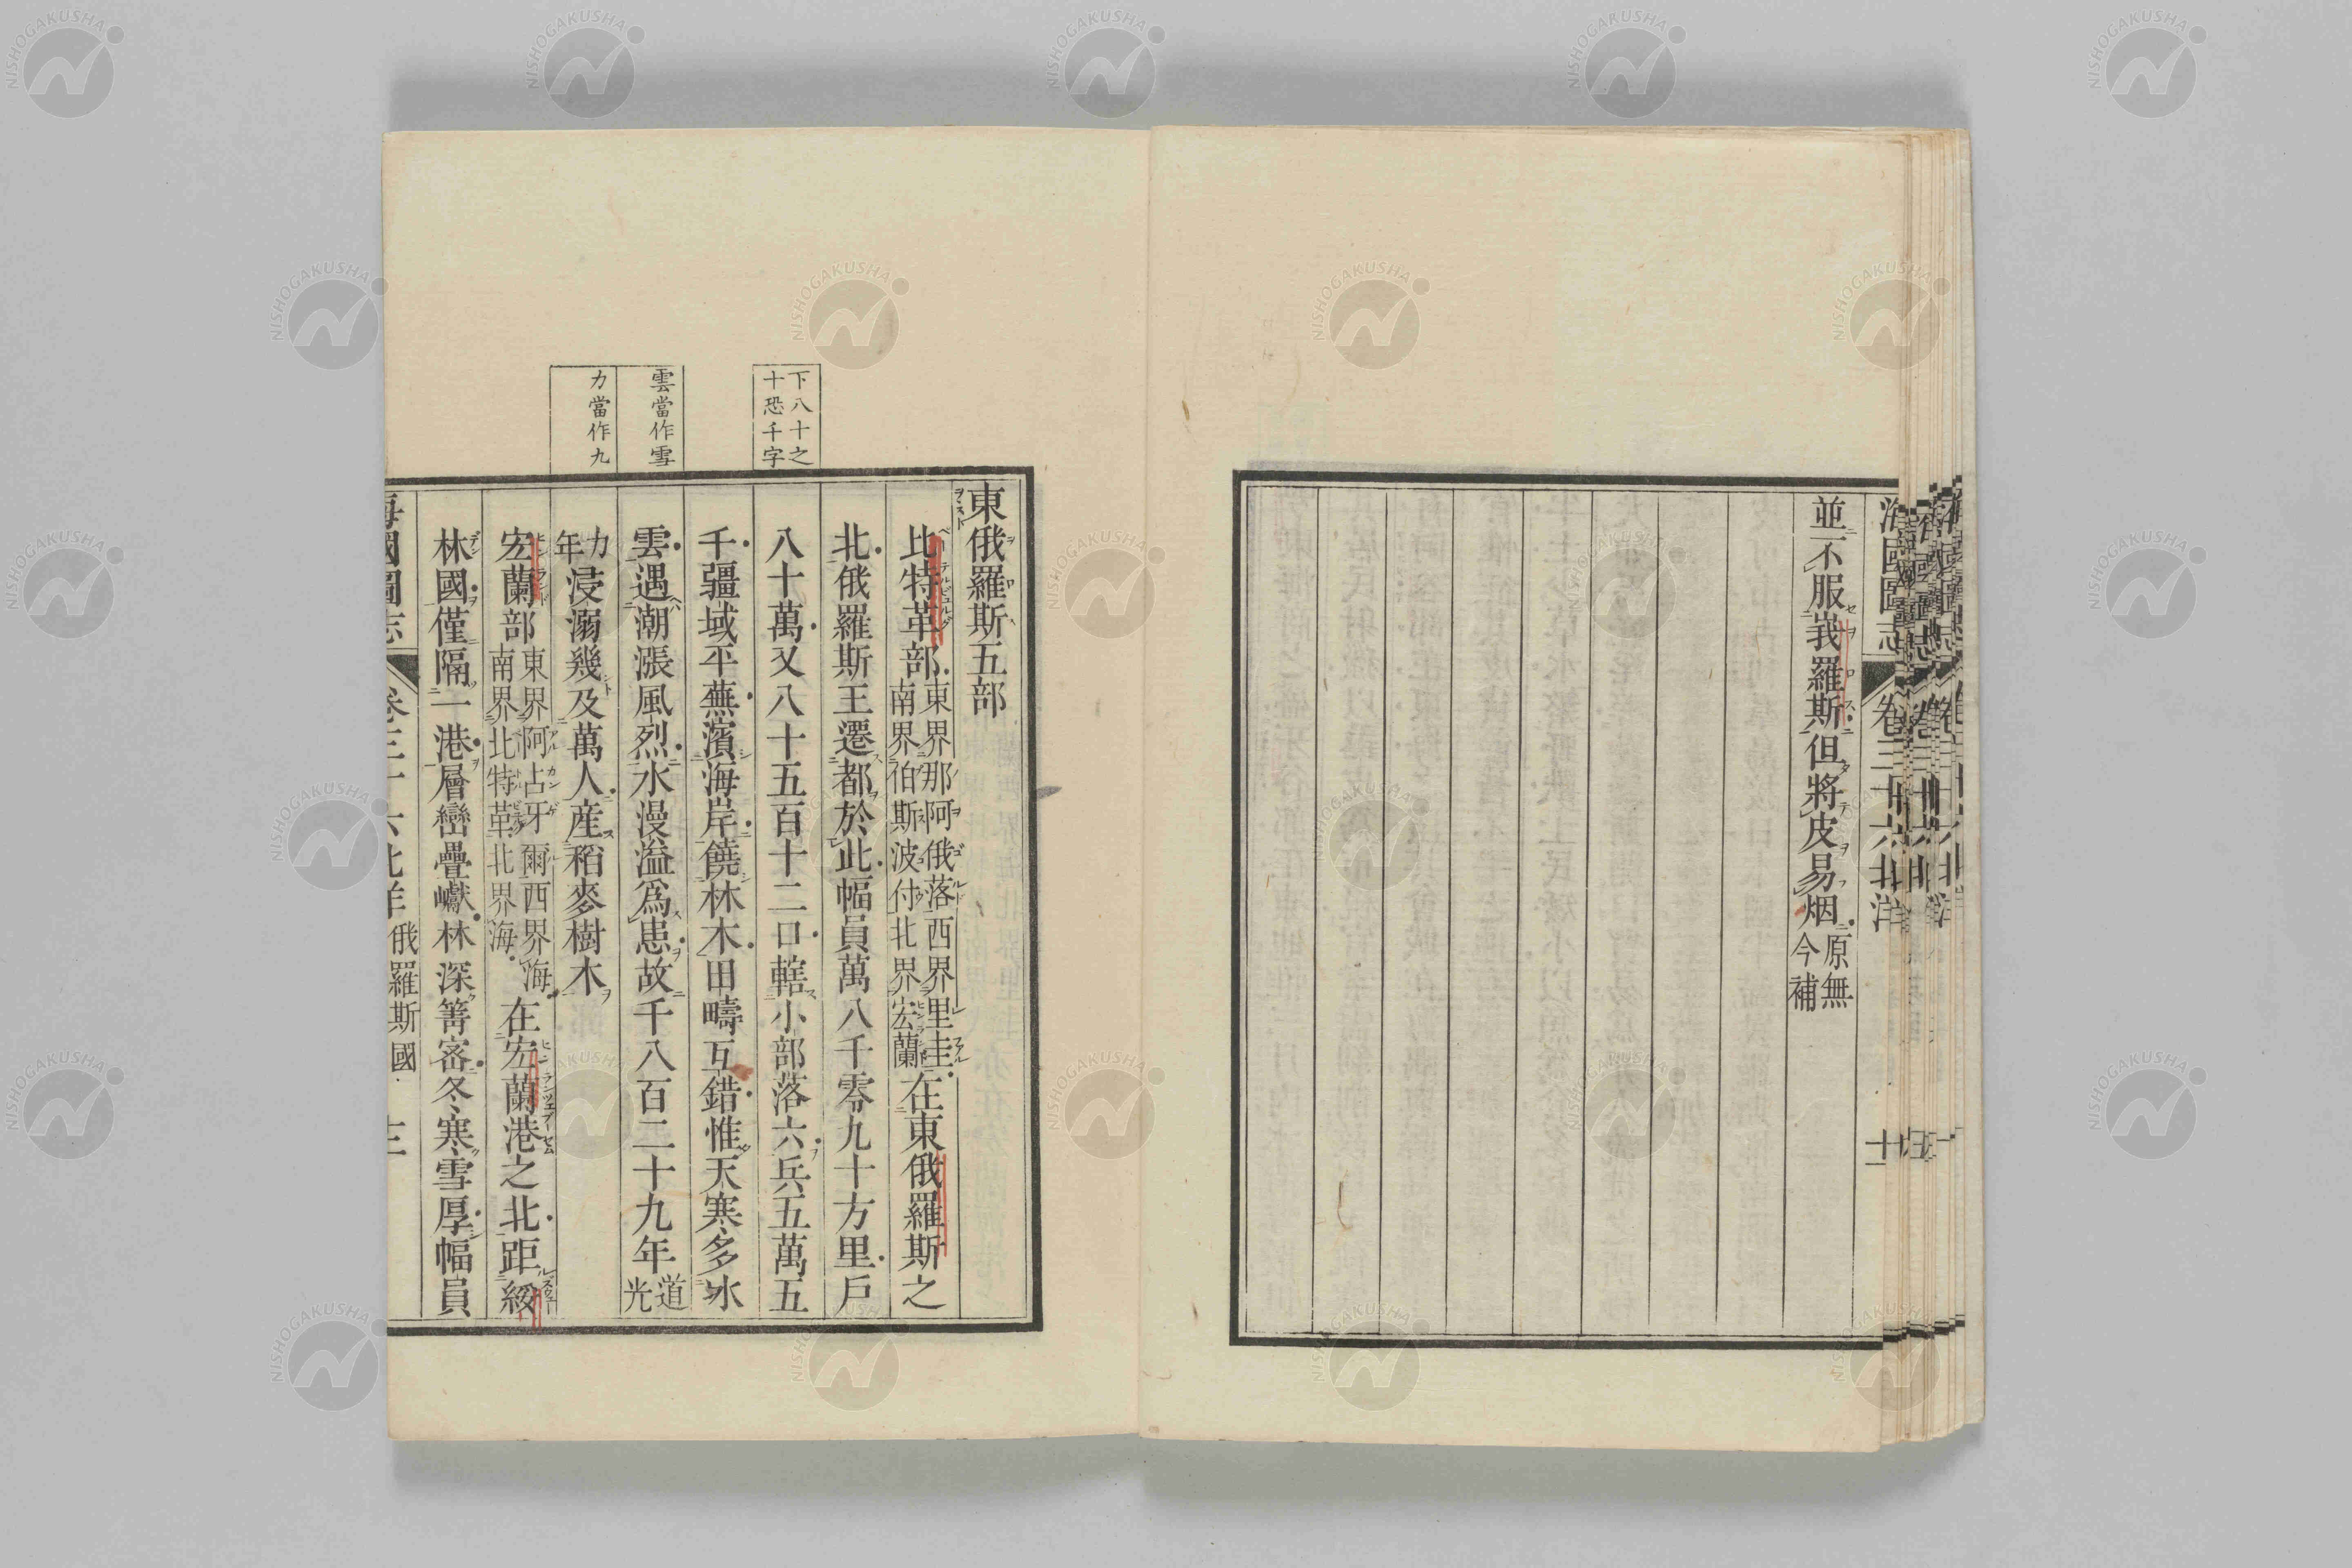 海國圖志 卷三十六 北洋 十一
並不服峩羅斯但將皮易烟原無今補
東俄羅斯五部
比特革部東界那阿俄落西界里圭南界伯斯波付北界宏蘭在東俄羅斯之
北俄羅斯王遷都於此幅員萬八千零九十方里戶
八十萬又八十五百十二口轄小部落六兵五萬五
千疆域平蕪濱海岸饒林木田疇互錯惟天寒多冰
雲遇潮漲風烈水漫溢爲患故千八百二十九年道光
力年浸溺幾及萬人產稻麥樹木
宏蘭部東界阿占牙爾西界海南界北特革北界海在宏蘭港之北距綏
林國僅隔一港層巒疊巘林深箐密冬寒雪厚幅員
海國圖志 卷三十六 北洋 俄羅斯國
下八十之十恐千字
雲當作雪
力當作九
NISHOGAKUSHA